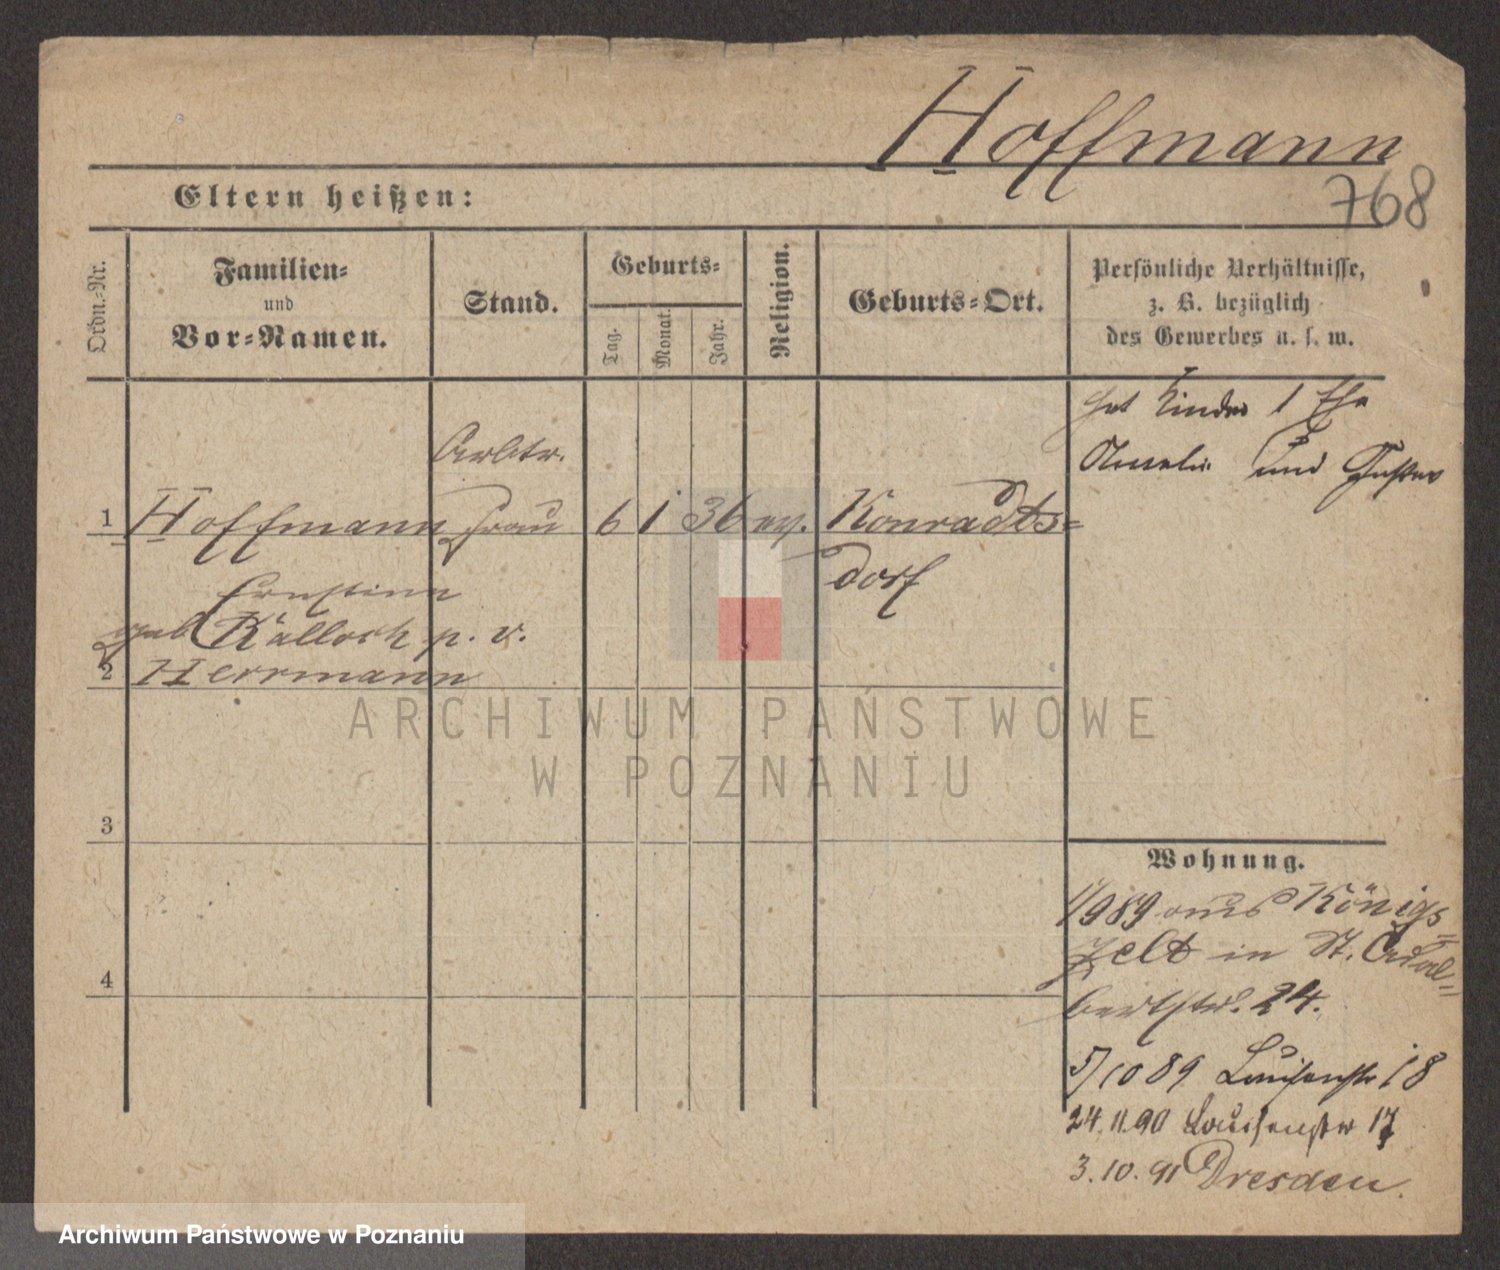 Hoffmann
768
Eltern heißen:
Ordn.-Nr.
Familien-
und
Vor-Namen.
Stand.
Geburts-
Tag.
Monat.
Jahr.
Religion.
Geburts-Ort.
Persönliche Verhältnisse,
z. B. bezüglich
des Gewerbes u. s. w.
hat Kinder 1 Ehe
Amalie und Gustav
Arbtr.
1 Hoffmann Frau 6 1 36 ev. Konradts-
dorf
Ernstine
geb Kalloch p. v.
2 Herrmann
3
4
Wohnung.
1/989 aus Königs-
zelt in St. Adal-
bertstr. 24.
5/10 89 Louisenstr 18
24.11.90 Louisenstr 17
3.10.91 Dresden.
ARCHIWUM PAŃSTWOWE
W POZNANIU
Archiwum Państwowe w Poznaniu